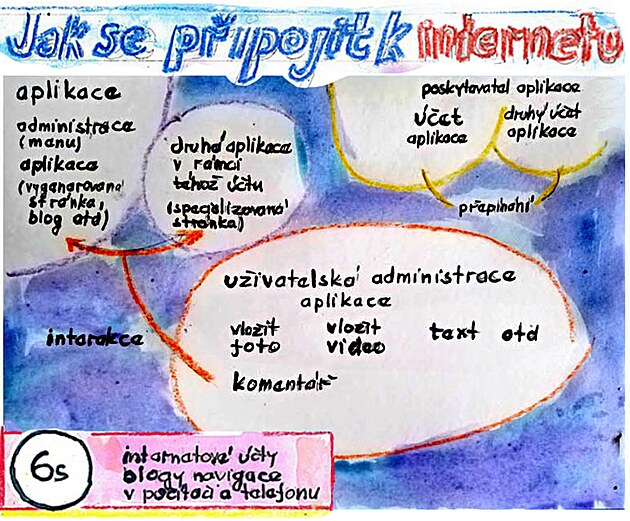 Jak se připojit k internetu
aplikace
administrace
(manu)
aplikace
(vyganarovaná
stránka,
blog atd)
druhá aplikace
v rámci
téhož účtu
(specializovaná
stránka)
poskytovatal aplikace
účet
aplikace
druhý účet
aplikace
přepínání
uživatelská administrace
aplikace
vložit
foto
vložit
video
text atd
komentář
intarakce
6s
intarnatové účty
blogy navigace
v počítači a telefonu